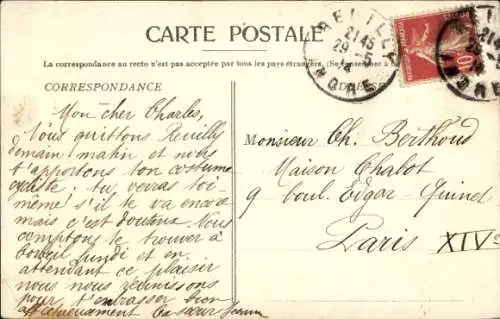 CARTE POSTALE
La correspondance au recto n'est pas acceptée par tous les pays étrangers. (Se renseigner à
CORRESPONDANCE
ADRESSE
REUILLY
21 45
29 - 5
14
INDRE
10
Mon cher Charles,
Nous quittons Reuilly
demain matin et nous
t'apportons ton costume
cycliste ; tu verras toi-
même s'il te va encore
mais c'est douteux. Nous
comptons te trouver à
Corbeil lundi et en
attendant ce plaisir
nous nous réunissons
pour t'embrasser bien
affectueusement Ta sœur
Monsieur Ch. Berthoud
Maison Chabot
9 boul. Edgar-Quinet
Paris XIVe